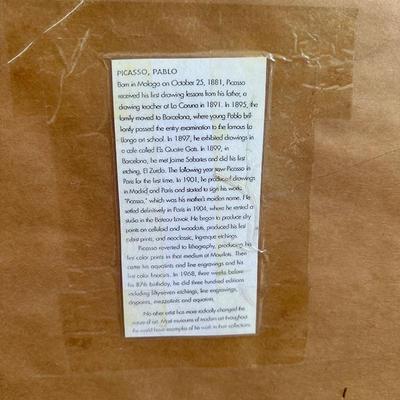 PICASSO, PABLO
Born in Malaga on October 25, 1881, Picasso
received his first drawing lessons from his father, a
drawing teacher at La Coruna in 1891. In 1895, the
family moved to Barcelona, where young Pablo bril-
liantly passed the entry examination to the famous La
Llonga art school. In 1897, he exhibited drawings in
a cafe called Els Quatre Gats. In 1899, in
Barcelona, he met Jaime Sabartes and did his first
etching, El Zurdo. The following year saw Picasso in
Paris for the first time. In 1901, he produced drawings
in Madrid and Paris and started to sign his work,
"Picasso," which was his mother's maiden name. He
settled definitively in Paris in 1904, where he rented a
studio in the Bateau Lavoir. He began to produce dry
points on celluloid and woodcuts, produced his first
cubist prints, and neoclassic, Ingresque etchings.
Picasso reverted to lithography, producing his
first color prints in that medium at Mourlots. Then
came his aquatints and line engravings and his
first color linocuts. In 1968, three weeks before
his 87th birthday, he did three hundred editions
including fifty-seven etchings, line engravings,
drypoints, mezzotints and aquatints.
No other artist has more radically changed the
nature of art. Most museums of modern art throughout
the world have examples of his work in their collections.